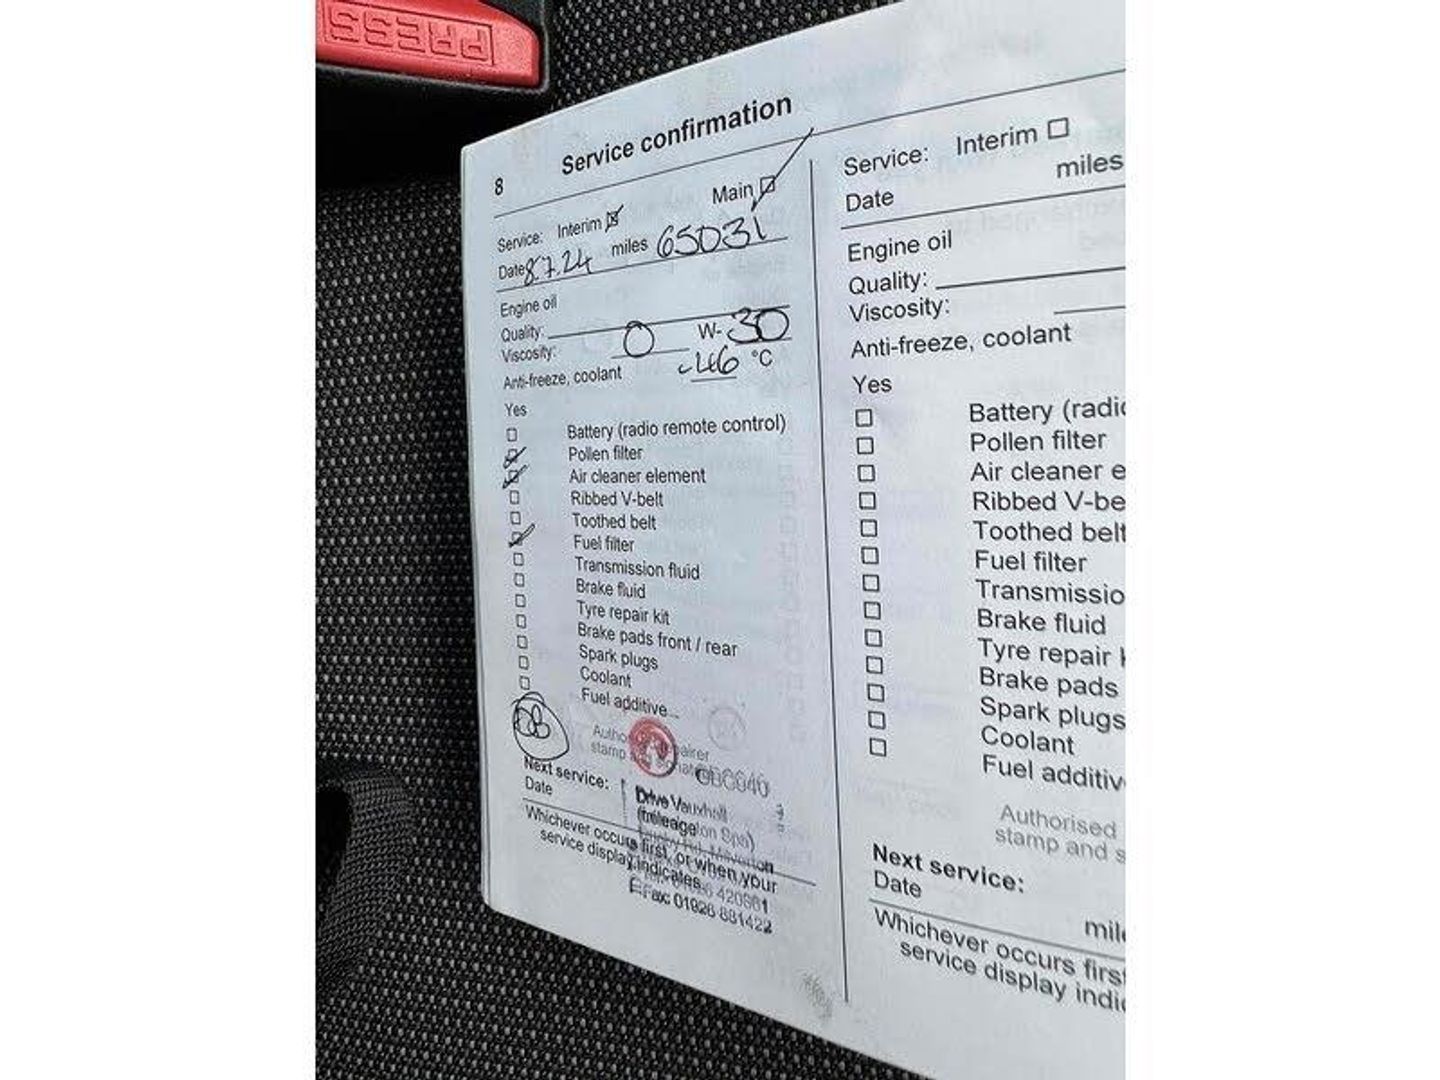 PRESS
8 Service confirmation
Service: Interim Main
Date 8.7.24 miles 65031
Engine oil
Quality:
Viscosity: 0 W-30
Anti-freeze, coolant -46 °C
Yes
Battery (radio remote control)
Pollen filter
Air cleaner element
Ribbed V-belt
Toothed belt
Fuel filter
Transmission fluid
Brake fluid
Tyre repair kit
Brake pads front / rear
Spark plugs
Coolant
Fuel additive...
DB
stamp
Next service:
Date
Drive Vauxhall
Spa)
Whichever occurs first, or when your
service display indicates.
420861
Fax: 01926 881422
Service: Interim
Date miles
Engine oil
Quality:
Viscosity:
Anti-freeze, coolant
Yes
Battery (radio
Pollen filter
Air cleaner e
Ribbed V-be
Toothed belt
Fuel filter
Transmissio
Brake fluid
Tyre repair
Brake pads
Spark plugs
Coolant
Fuel additiv
Authorised
stamp and s
Next service:
Date mil
Whichever occurs first
service display indi